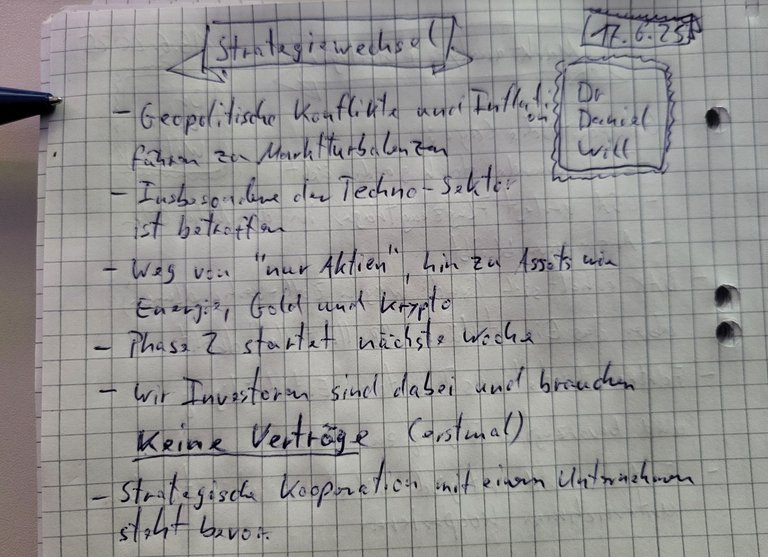 Strategiewechsel
17.6.25
Dr
Daniel
Will
- Geopolitische Konflikte und Inflati
on
führen zu Marktturbulenzen
- Insbesondere der Techno-Sektor
ist betroffen
- Weg von "nur Aktien", hin zu Assets wie
Energie, Gold und Krypto
- Phase 2 startet nächste Woche
- Wir Investoren sind dabei und brauchen
Keine Verträge (erstmal)
- Strategische Kooperation mit einem Unternehmen
steht bevor.